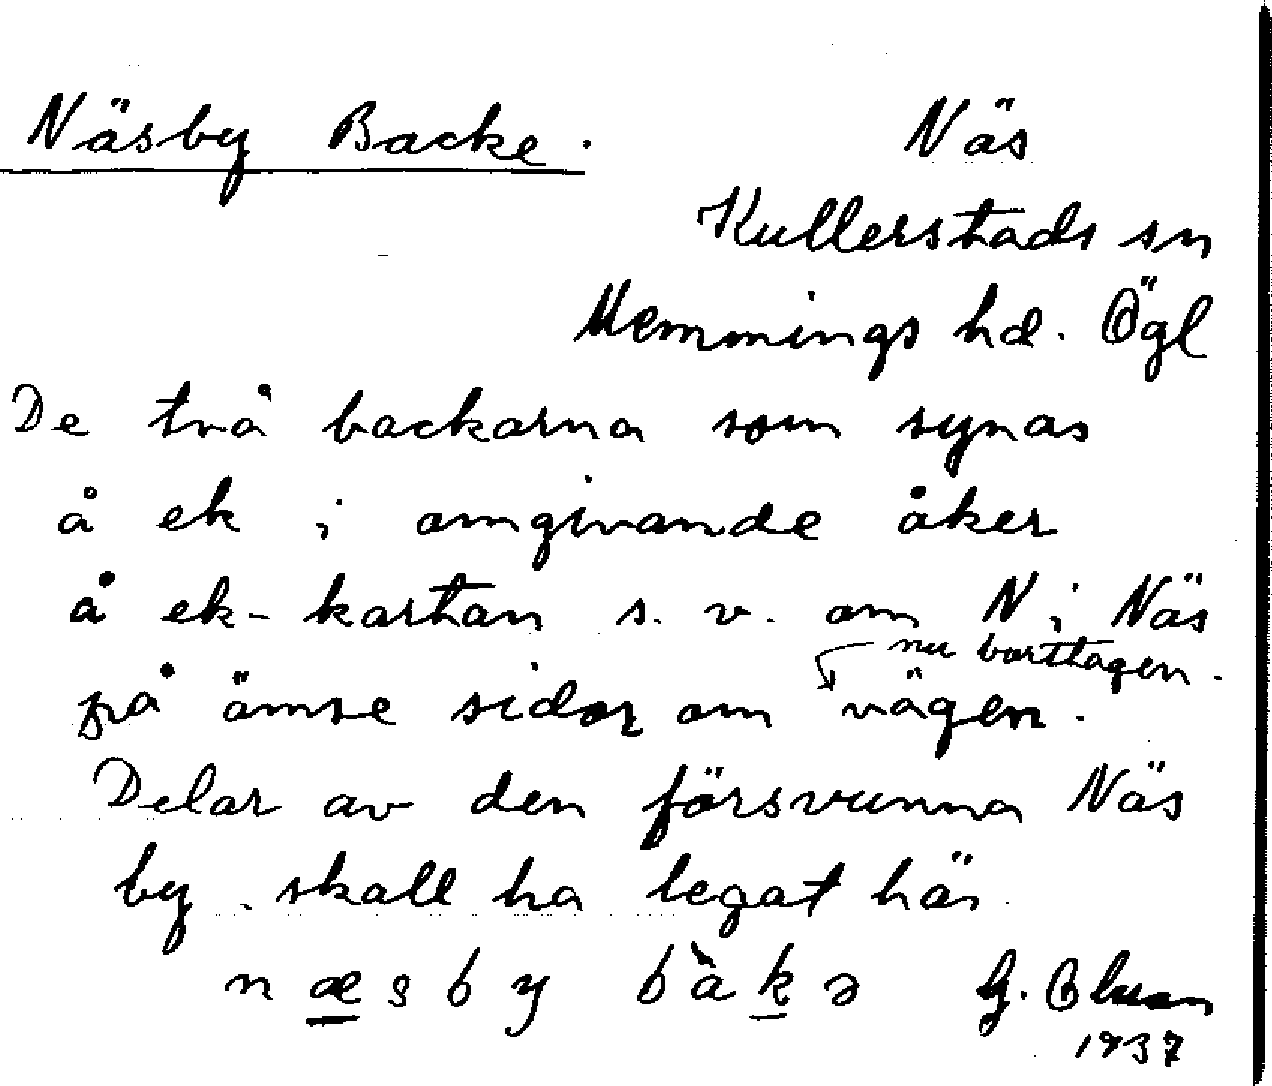 Näsby Backe. Näs
Kullerstads sn
Memmings hd. Ögl
De två backarna som synas
å ek i omgivande åker
å ek-kartan s.v. om N i Näs
nu borttagen.
på ömse sidor om vägen.
Delar av den försvunna Näs
by skall ha legat här
næsby bàkə G.
1937